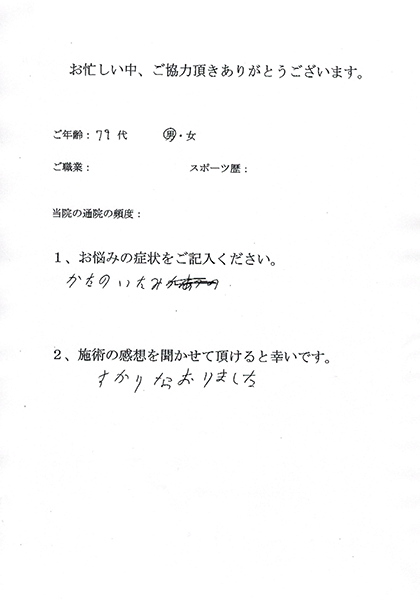 お忙しい中、ご協力頂きありがとうございます。
ご年齢：79代 男・女
ご職業： スポーツ歴：
当院の通院の頻度：
1、お悩みの症状をご記入ください。
かたのいたみ
2、施術の感想を聞かせて頂けると幸いです。
すかりなおりました